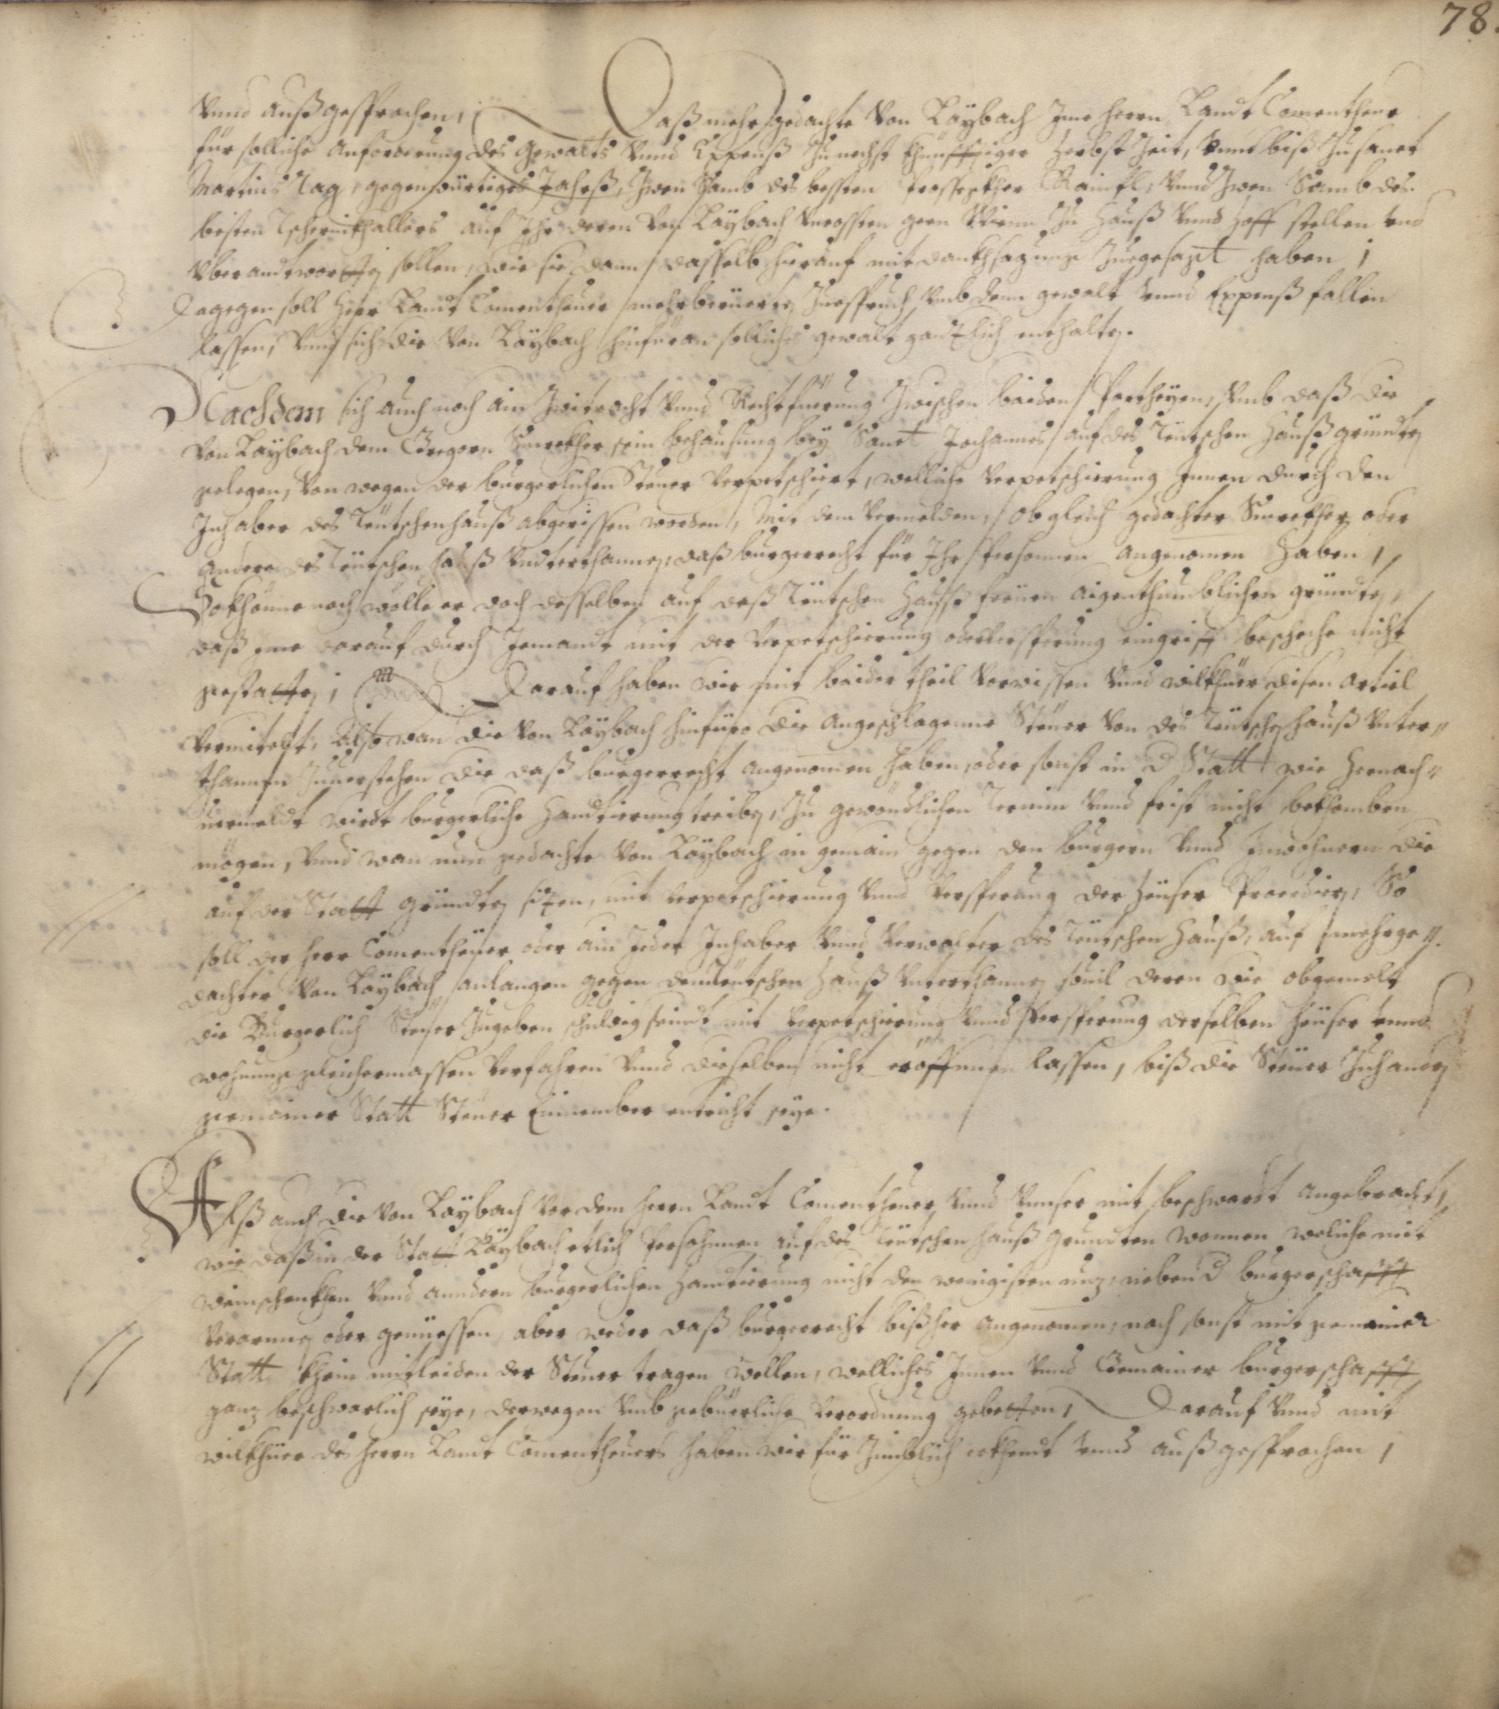 78.
Vnnd außgesprochen, Daß mehrgedachte Von Laÿbach Jme Herrn Landt Comentheur
für solliche Anforderung des gewalts Vnnd Expenß Zu nechst khunfftiger Herbst Zeit, Vnnd biß Zu Sanct
Martins Tag, gegenwürtiges Jahrß, Zwen Samb des besten Raintl, Vnnd Zwen Samb des
besten Tschernikhallers auf Jhr deren von Laÿbach Vncossten geen Wienn Zu Hauß Vnnd Hoff stellen vnd
Vberandtwortten sollen, wie sie dann dasselb hierauf mit dankhsagung Zuegesagt haben,
Dagegen soll Herr Landt Comentheur mehrberüerten Zuespruch Vmb den gewalt Vnnd Expenß fallen
lassen, Vnnd sich die Von Laÿbach hinfüran solliches gewalt gantzlich enthalten.
Nachdem sich auch noch ain Zwitracht Vnnd Rechtfüerung Zwischen baiden Partheyen, Vmb daß die
Von Laÿbach dem Gregorn sein behausung beÿ Sanct Johannes auf des Teutschen Hauß gründten
gelegen, Von wegen der burgerlichen Steuer Verpetschiert, welliche Verpetschierung Jnnen durch den
Jnhaber des Teutschenhauß abgerissen worden, Mit dem Vermelden, ob gleich gedachter oder
andere des Teutschen Hauß Vnderthannen, daß burgerrecht für Jhr Persohnen angenomen haben,
So khönne noch wölle er doch desselben auf deß Teutschen Hauß freyen aigenthumblichen gründten,
daß jme darauf durch Jemandt mit der Verpetschierung oder Versperrung eingriff beschehe nicht
gestatten, Darauf haben wir mit baider theil Vorwissen Vnnd wilkhüer disen articl
Vermitelt, Also wan die Von Laÿbach hinfüro die angeschlagenne Steuer Von des Teutschenhauß Vnter-
thannen Zuuerstehen die daß burgerrecht angenomen haben, oder sonst in d Statt wie hernach-
uermeldt wirdt burgerliche handtierung treiben, Zu gewondlichen Termin Vnnd frist nicht bekhomben
mögen, Vnnd wan nun gedachte Von Laÿbach in gemain gegen den burgern Vnnd Jnwohnern die
auf der Statt gründten sizen, mit Verpetschierung Vnnd Versperrung der Heuser Procediern, So
soll der Herr Comentheuer oder ain Jeder Jnhaber Vnnd Verwalter des Teutschen Hauß, auf mehrge-
dachter Von Laÿbach anlangen gegen den Teutschen Hauß Vnterthannen souil deren wie obgemelt
die Burgerlich Steuer Zugeben schuldig seindt mit Verpetschierung Vnnd Versperrung derselben Heuser vnnd
wohnung gleichermassen Verfahren Vnnd dieselben nicht eröffnen lassen, biß die Steuer Zuhanden
gemainer Statt Steuer Einnember entricht seye.
Alß auch die Von Laÿbach Vor dem Herrn Landt Comentheuer, Vnnd Vnnser mit beschwardt angebracht,
wie daß in der Statt Laÿbach etlich Persohnnen auf des Teutschen Hauß Grundten wonnen weliche mit
weinschenkhen Vnnd anndern burgerlichen handtierung nicht den wenigisten nuz, neben d burgerschafft
oder genüessen, aber weder daß burgerrecht bißher angenomen, noch sonst mit gemainer
Statt khain mitleiden der Steuer tragen wöllen, welliches Jnnen Vnnd Gemainer burgerschafft
ganz beschwarlich seye, derwegen Vmb gebüerliche Verordnung gebetten, Darauf Vnnd mit
wilkhüer des Herrn Landt Comentheuers haben wir für Zimblich erkhendt vnnd außgesprochen,